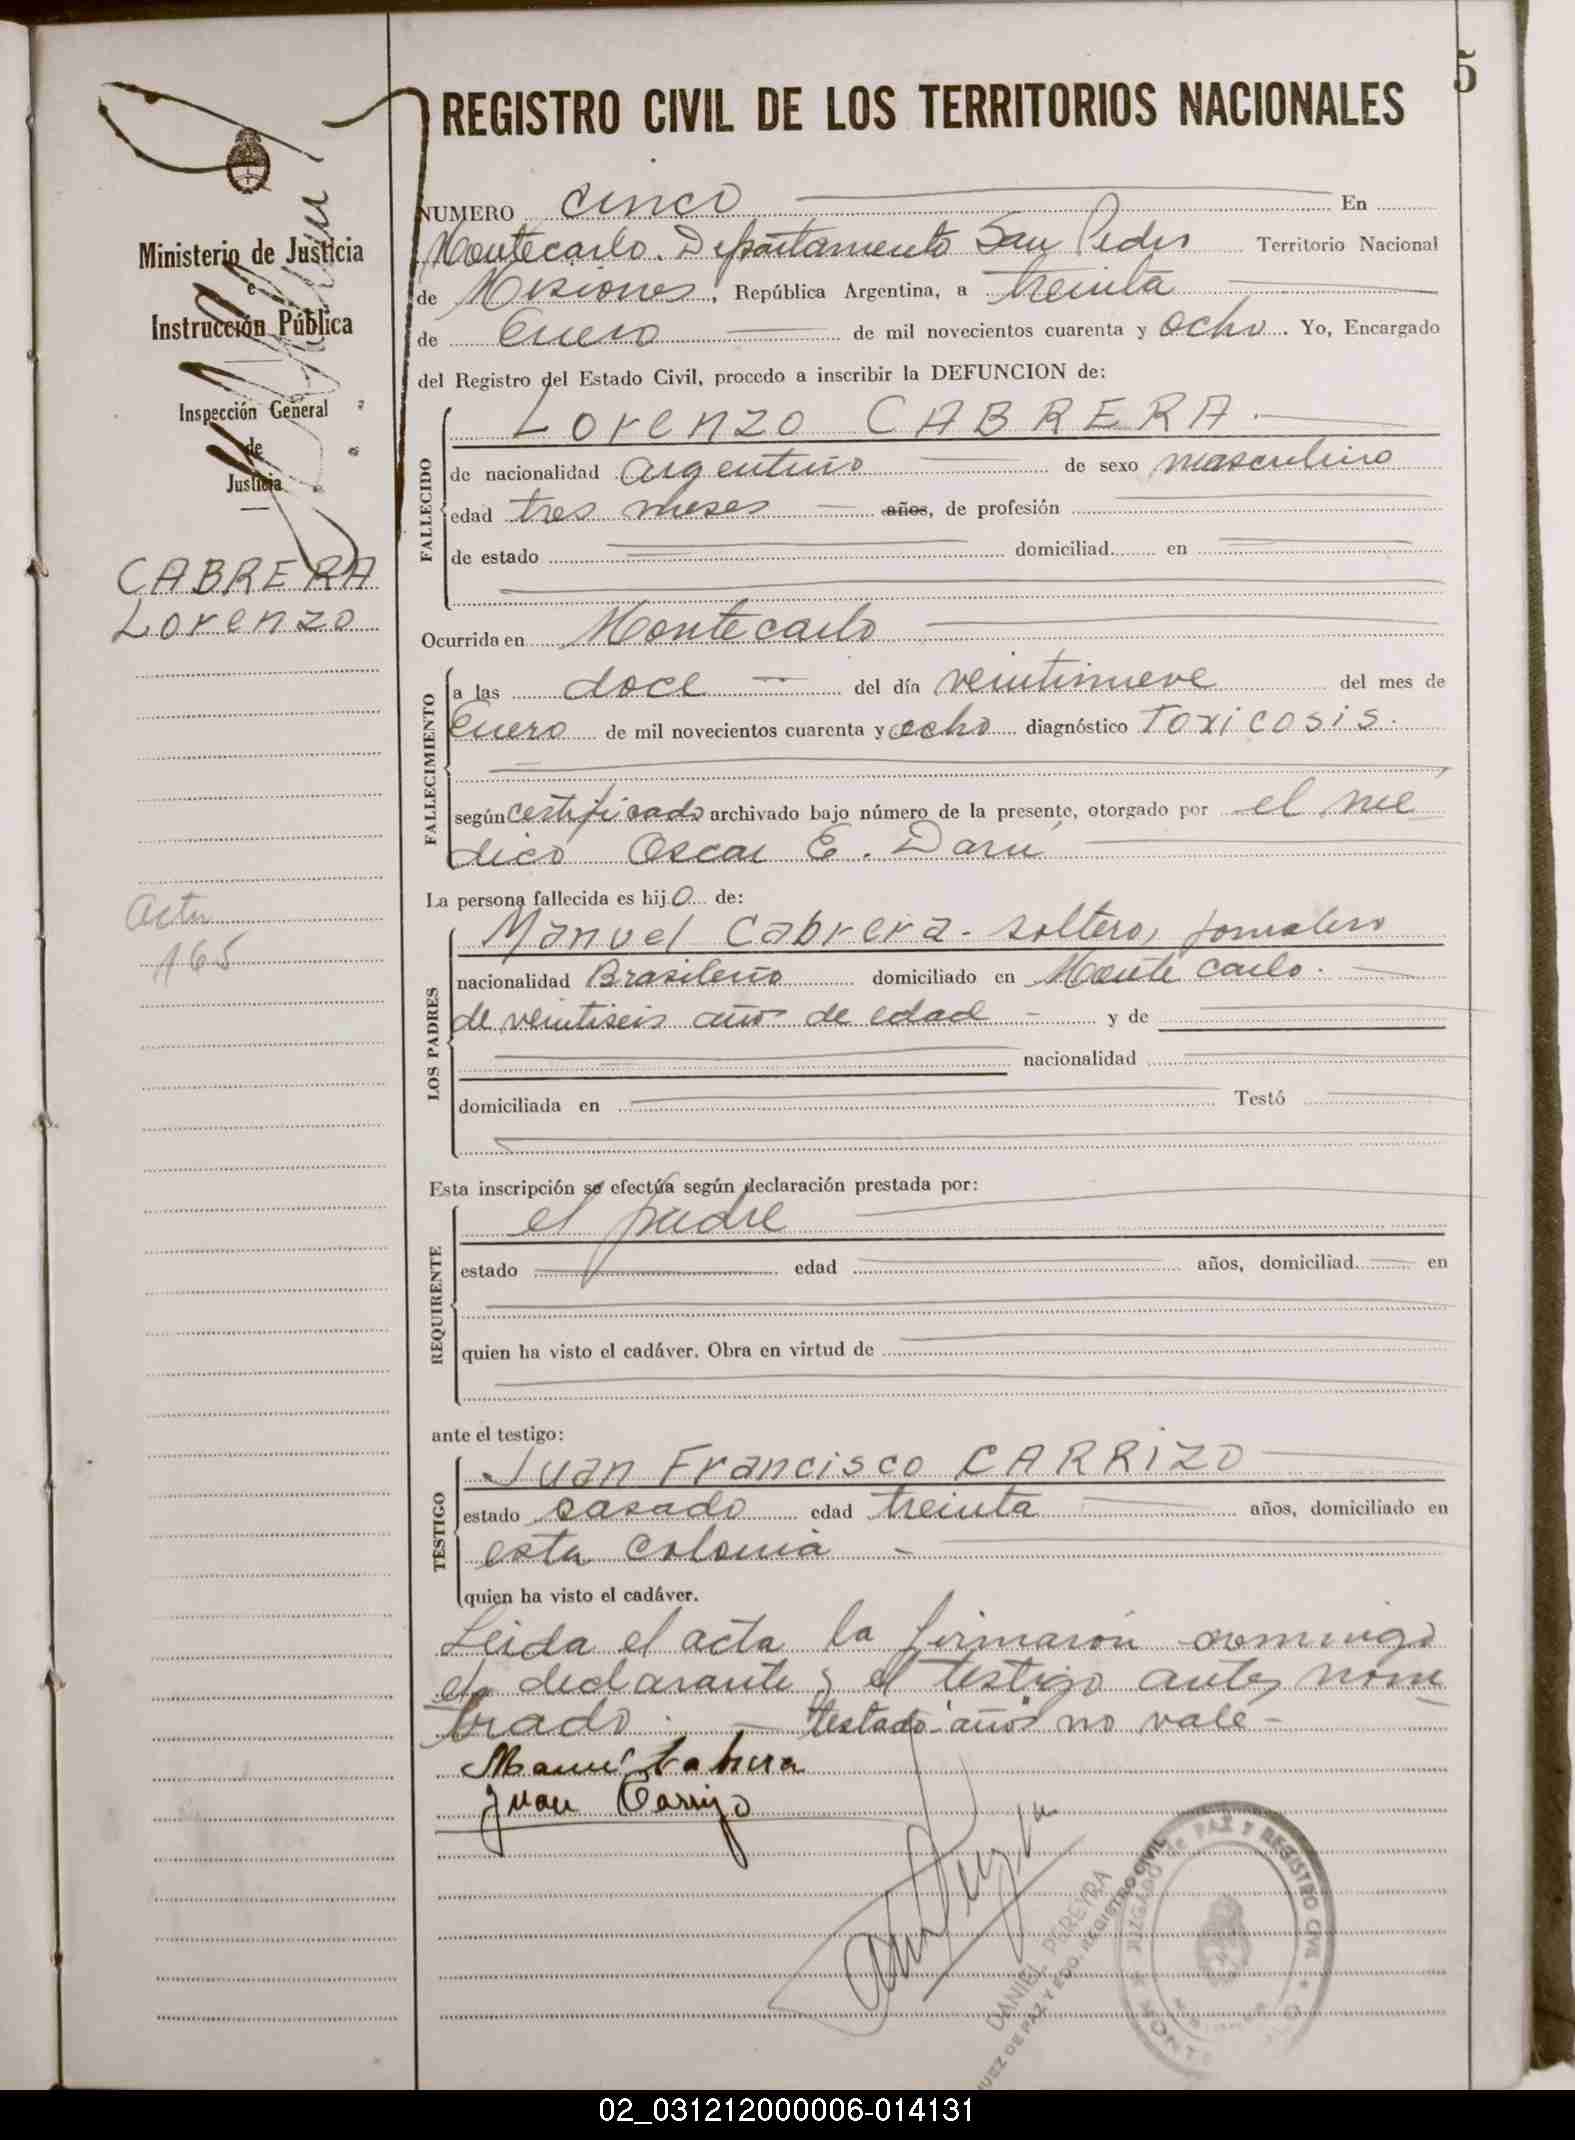 5
REGISTRO CIVIL DE LOS TERRITORIOS NACIONALES
Ministerio de Justicia
e
Instrucción Pública
Inspección General
de
Justicia
CABRERA
Lorenzo
Acta
165
NUMERO cinco En
Montecarlo. Departamento San Pedro Territorio Nacional
de Misiones, República Argentina, a treinta
de Enero de mil novecientos cuarenta y ocho. Yo, Encargado
del Registro del Estado Civil, procedo a inscribir la DEFUNCION de:
FALLECIDO
Lorenzo CABRERA.
de nacionalidad argentino de sexo masculino
edad tres meses años, de profesión
de estado domiciliad en
Ocurrida en Montecarlo
FALLECIMIENTO
a las doce del día veintinueve del mes de
Enero de mil novecientos cuarenta y ocho diagnóstico Toxicosis.
según certificado archivado bajo número de la presente, otorgado por el mé
dico Oscar E. Darú
La persona fallecida es hijo de:
LOS PADRES
Manuel Cabrera - soltero, jornalero
nacionalidad Brasileño domiciliado en Monte Carlo.
de veintiseis años de edad - y de
nacionalidad
domiciliada en Testó
Esta inscripción se efectúa según declaración prestada por:
REQUIRENTE
el padre
estado edad años, domiciliad en
quien ha visto el cadáver. Obra en virtud de
ante el testigo:
TESTIGO
Juan Francisco CARRIZO
estado casado edad treinta años, domiciliado en
esta Colonia -
quien ha visto el cadáver.
Leida el acta la firmaron conmigo
el declarante y el testigo antes nom
brado. - testado "años" no vale -
Manuel Cabrera
Juan Carrizo
DANIEL PEREYRA
JUEZ DE PAZ Y EDO. REGISTRO CIVIL
JUZGADO de PAZ Y REGISTRO CIVIL
02_031212000006-014131